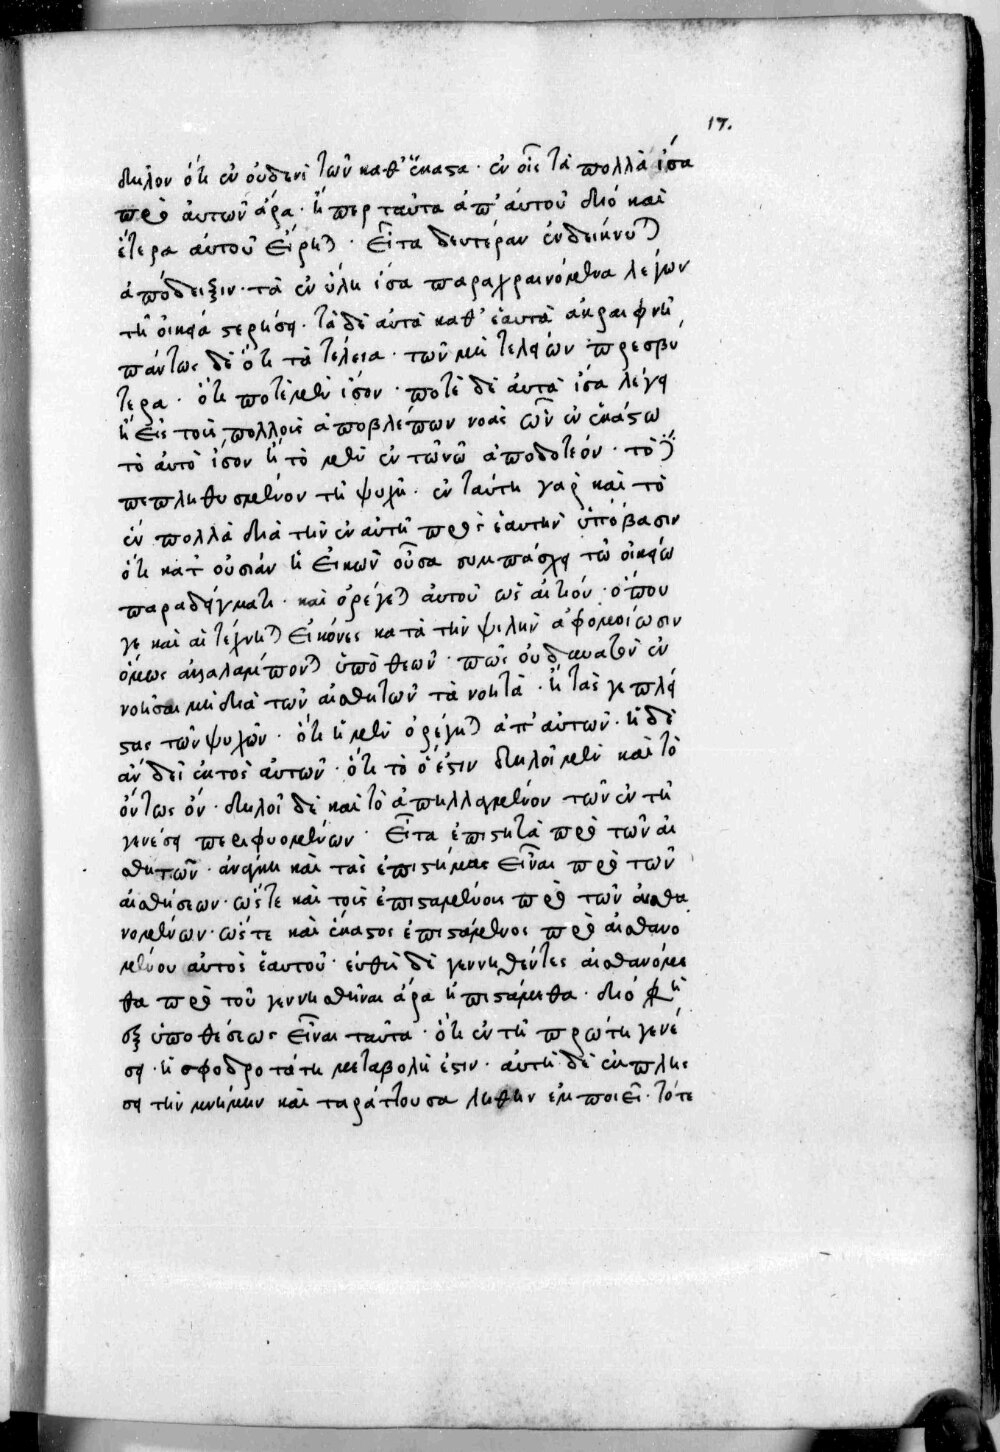 17.
δῆλον ὅτι ἐν οὐδενὶ τῶν καθ' ἕκαστα · ἐν οἷς τὰ πολλὰ ἴσα
πρὸ αὐτῶν ἄρα · ἥπερ ταῦτα ἀπ' αὐτοῦ διό καὶ
ἕτερα αὐτοῦ εἴρηται · Εἶτα δευτέραν ἐνδείκνυται
ἀπόδειξιν · τὰ ἐν ὕλη ἴσα παραχραινόμενα λέγων
τῆ οἰκεία στερήσει · τὰ δὲ αὐτὰ καθ' ἑαυτὰ ἀκραιφνῆ
πάντως δὲ ὅτι τὰ τέλεια · τῶν μὴ τελείων πρεσβυ
τερα · ὅτι ποτὲ μὲν ἴσον · ποτὲ δὲ αὐτὰ ἴσα λέγει
ἢ εἰς τοὺς πολλοὺς ἀποβλέπων νόας ὧν ἐν ἑκάστω
τὸ αὐτὸ ἴσον ἢ τὸ μὲν ἐν τῶ νῶ ἀποδοτέον · τὸ
πεπληθυσμένον τῆ ψυχῆ · ἐν ταύτη γὰρ καὶ τὸ
ἓν πολλὰ διὰ τὴν ἐν αὐτῆ πρὸς ἑαυτὴν ὑπόβασιν
ὅτι κατ' οὐσίαν ἡ εἰκὼν οὖσα συμπάσχει τῶ οἰκείω
παραδείγματι · καὶ ὀρέγεται αὐτοῦ ὡς αἴτιον · ὅπου
γε καὶ αἱ τέχνηται εἰκόνες κατὰ τὴν ψιλὴν ἀφομοίωσιν
ὅμως ἀναλάμπονται ὑπὸ θεῶν · πῶς οὐ δυνατὸν ἐν
νοῆσαι μὴ διὰ τῶν αἰσθητῶν τὰ νοητὰ · ἢ τὰς γε πλεί
στας τῶν ψυχῶν · ὅτι ἡ μὲν ὀρέγεται ἀπ' αὐτῶν · ἡ δὲ
ἀν δεῖ ἐκτὸς αὐτῶν · ὅτι τὸ ὅ ἐστιν δηλοῖ μὲν καὶ τὸ
ὄντως ὄν · δηλοῖ δὲ καὶ τὸ ἀπηλλαγμένον τῶν ἐν τῆ
γενέσει περιφυομένων · Εἶτα ἐπιστητὰ πρὸ τῶν αἰ
σθητῶν · ἀνάγκη καὶ τὰς ἐπιστήμας εἶναι πρὸ τῶν
αἰσθήσεων · ὥστε καὶ τοὺς ἐπισταμένους πρὸ τῶν αἰσθα
νομένων · ὥστε καὶ ἕκαστος ἐπιστάμενος πρὸ αἰσθανο
μένου αὐτὸς ἑαυτοῦ · εὐθὺς δὲ γεννηθέντες αἰσθανόμε
θα πρὸ τοῦ γεννηθῆναι ἄρα ἠπιστάμεθα · διό φη
σιν ἐξ ὑποθέσεως εἶναι ταῦτα · ὅτι ἐν τῆ πρώτη γενέ
σει · ἡ σφοδροτάτη μεταβολή ἐστιν · αὕτη δὲ ἐκπλήσ
σει τὴν μνήμην καὶ ταράττουσα λήθην ἐμποιεῖ · τότε